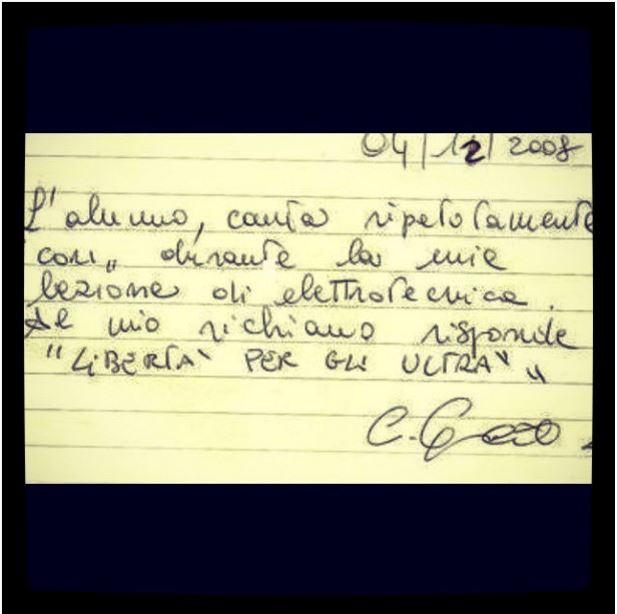 04/12/2008
L'alunno, canta ripetutamente
cori,, durante la mia
lezione di elettrotecnica.
Al mio richiamo risponde
"LIBERTA' PER GLI ULTRA'"
C.